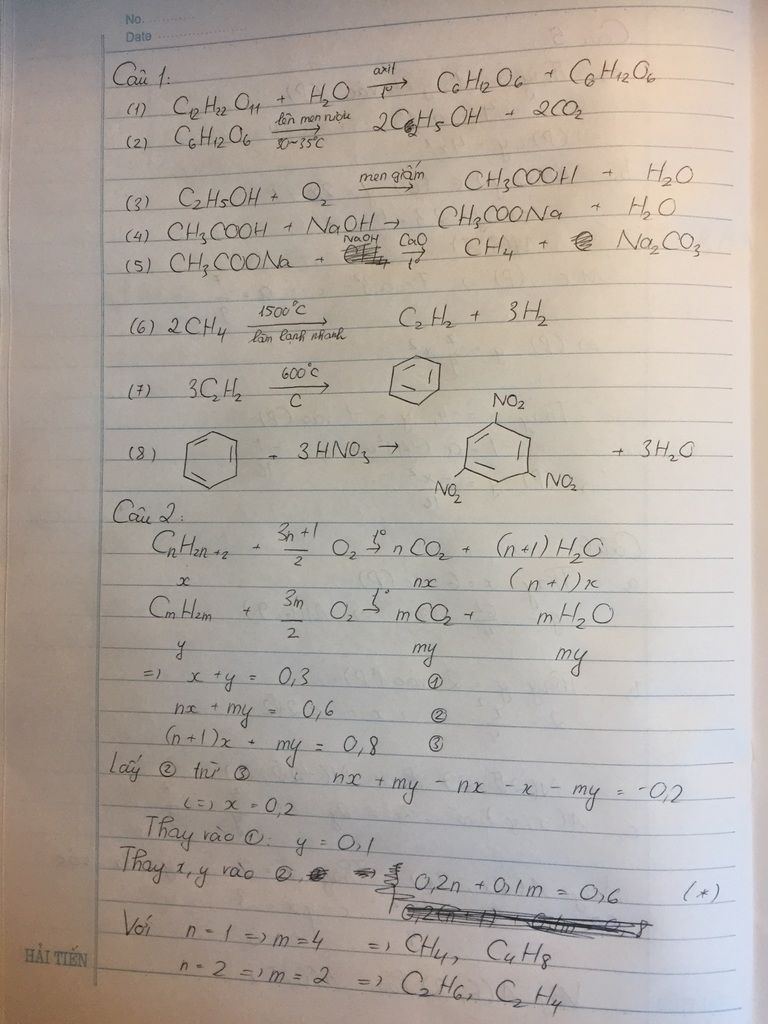 No.
Date
Câu 1:
(1) C12H22O11 + H2O axit → t° C6H12O6 + C6H12O6
(2) C6H12O6 lên men rượu → 30~35°C 2C2H5OH + 2CO2
(3) C2H5OH + O2 men giấm → CH3COOH + H2O
(4) CH3COOH + NaOH → CH3COONa + H2O
(5) CH3COONa + NaOH CaO → t° CH4 + Na2CO3
(6) 2CH4 1500°C → làm lạnh nhanh C2H2 + 3H2
(7) 3C2H2 600°C → C
NO2
(8) + 3HNO3 → + 3H2O
NO2 NO2
Câu 2:
CnH2n+2 + 3n+1/2 O2 t° → nCO2 + (n+1)H2O
x nx (n+1)x
CmH2m + 3m/2 O2 t° → mCO2 + mH2O
y my my
=> x + y = 0,3 ①
nx + my = 0,6 ②
(n+1)x + my = 0,8 ③
Lấy ② trừ ③ : nx + my - nx - x - my = -0,2
(=) x = 0,2
Thay vào ①: y = 0,1
Thay x, y vào ② => 0,2n + 0,1m = 0,6 (*)
Với n = 1 => m = 4 => CH4, C4H8
n = 2 => m = 2 => C2H6, C2H4
HẢI TIẾN